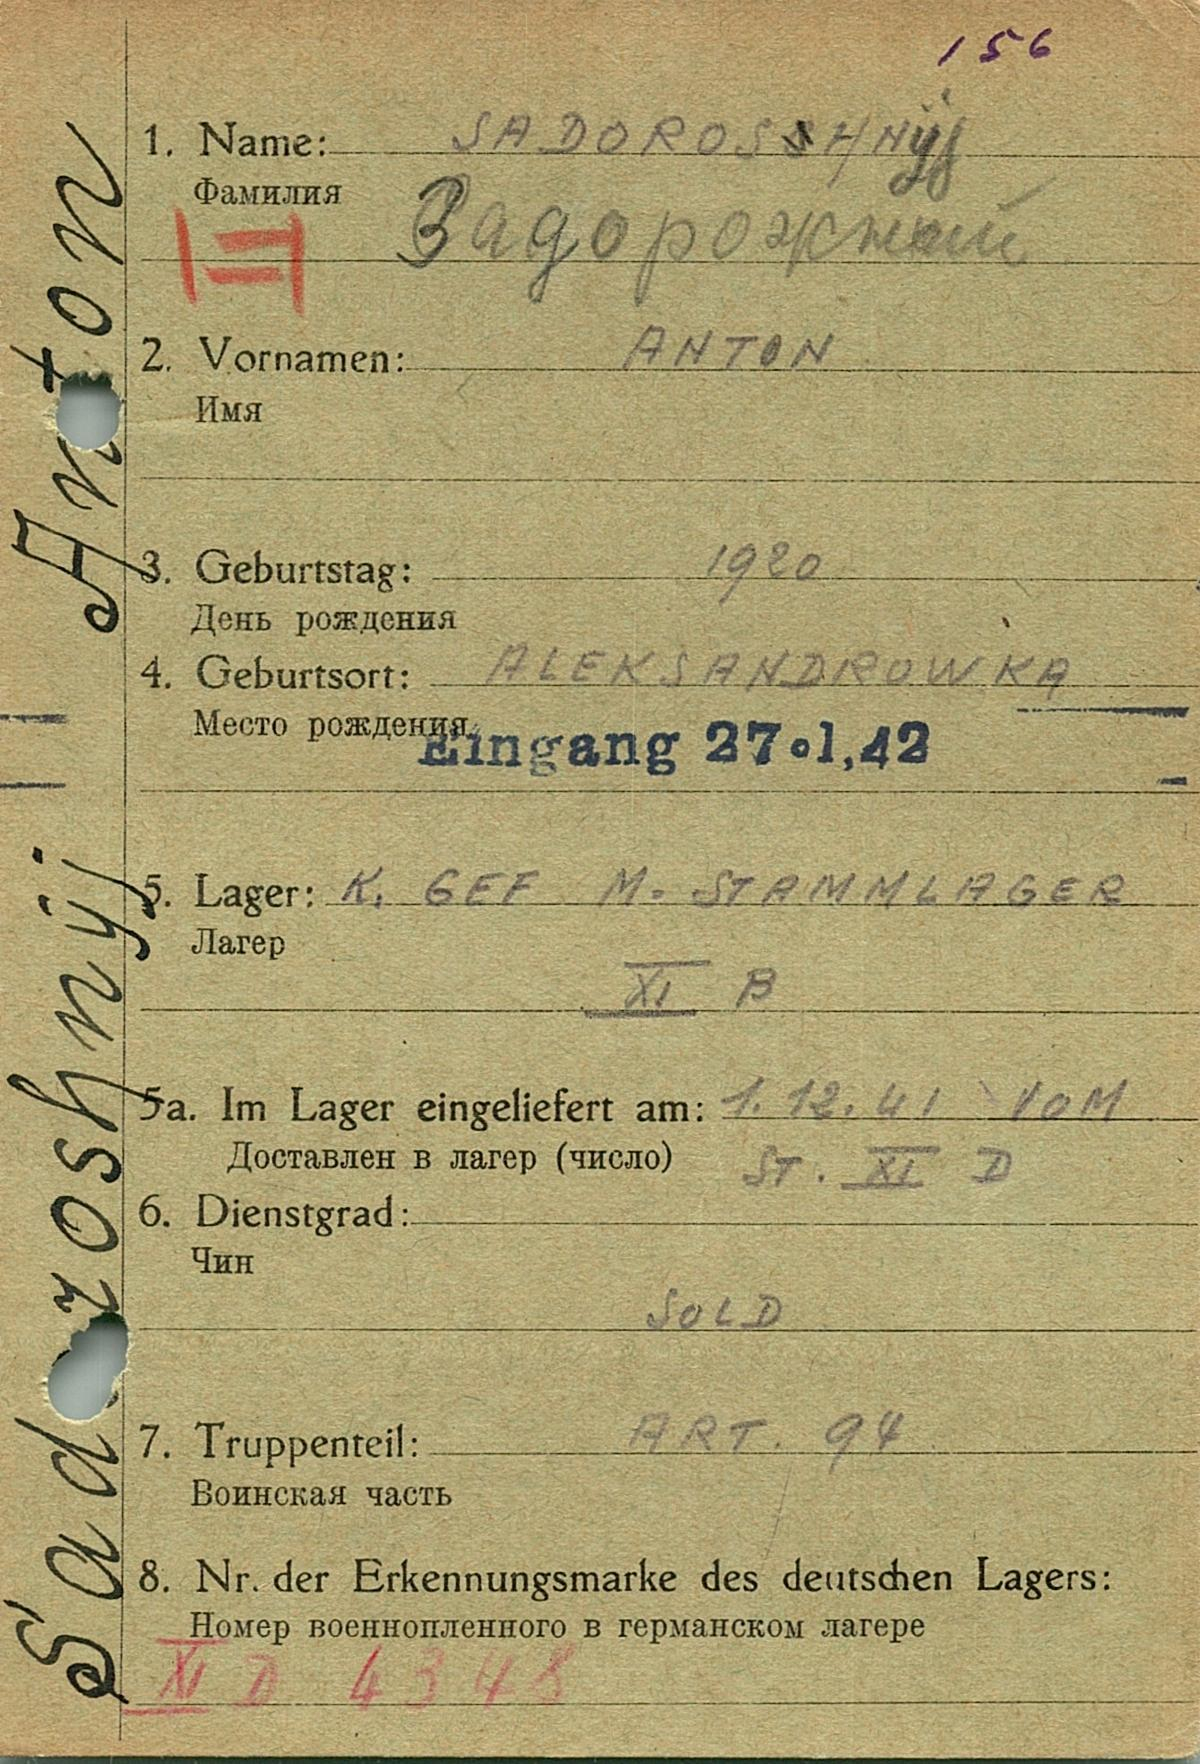 156
1. Name: SADOROSSHNÿj
Фамилия
Задорожний
III
2. Vornamen: ANTON
Имя
3. Geburtstag: 1920
День рождения
4. Geburtsort: ALEKSANDROWKA
Место рождения
Eingang 27.1.42
5. Lager: K. GEF M. STAMMLAGER
Лагер
XI B
5a. Im Lager eingeliefert am: 1.12.41 VOM
Доставлен в лагер (число) ST. XI D
6. Dienstgrad:
Чин
SOLD
7. Truppenteil: ART. 94
Воинская часть
8. Nr. der Erkennungsmarke des deutschen Lagers:
Номер военнопленного в германском лагере
XI D 4348
Sadoroshnÿj Anton